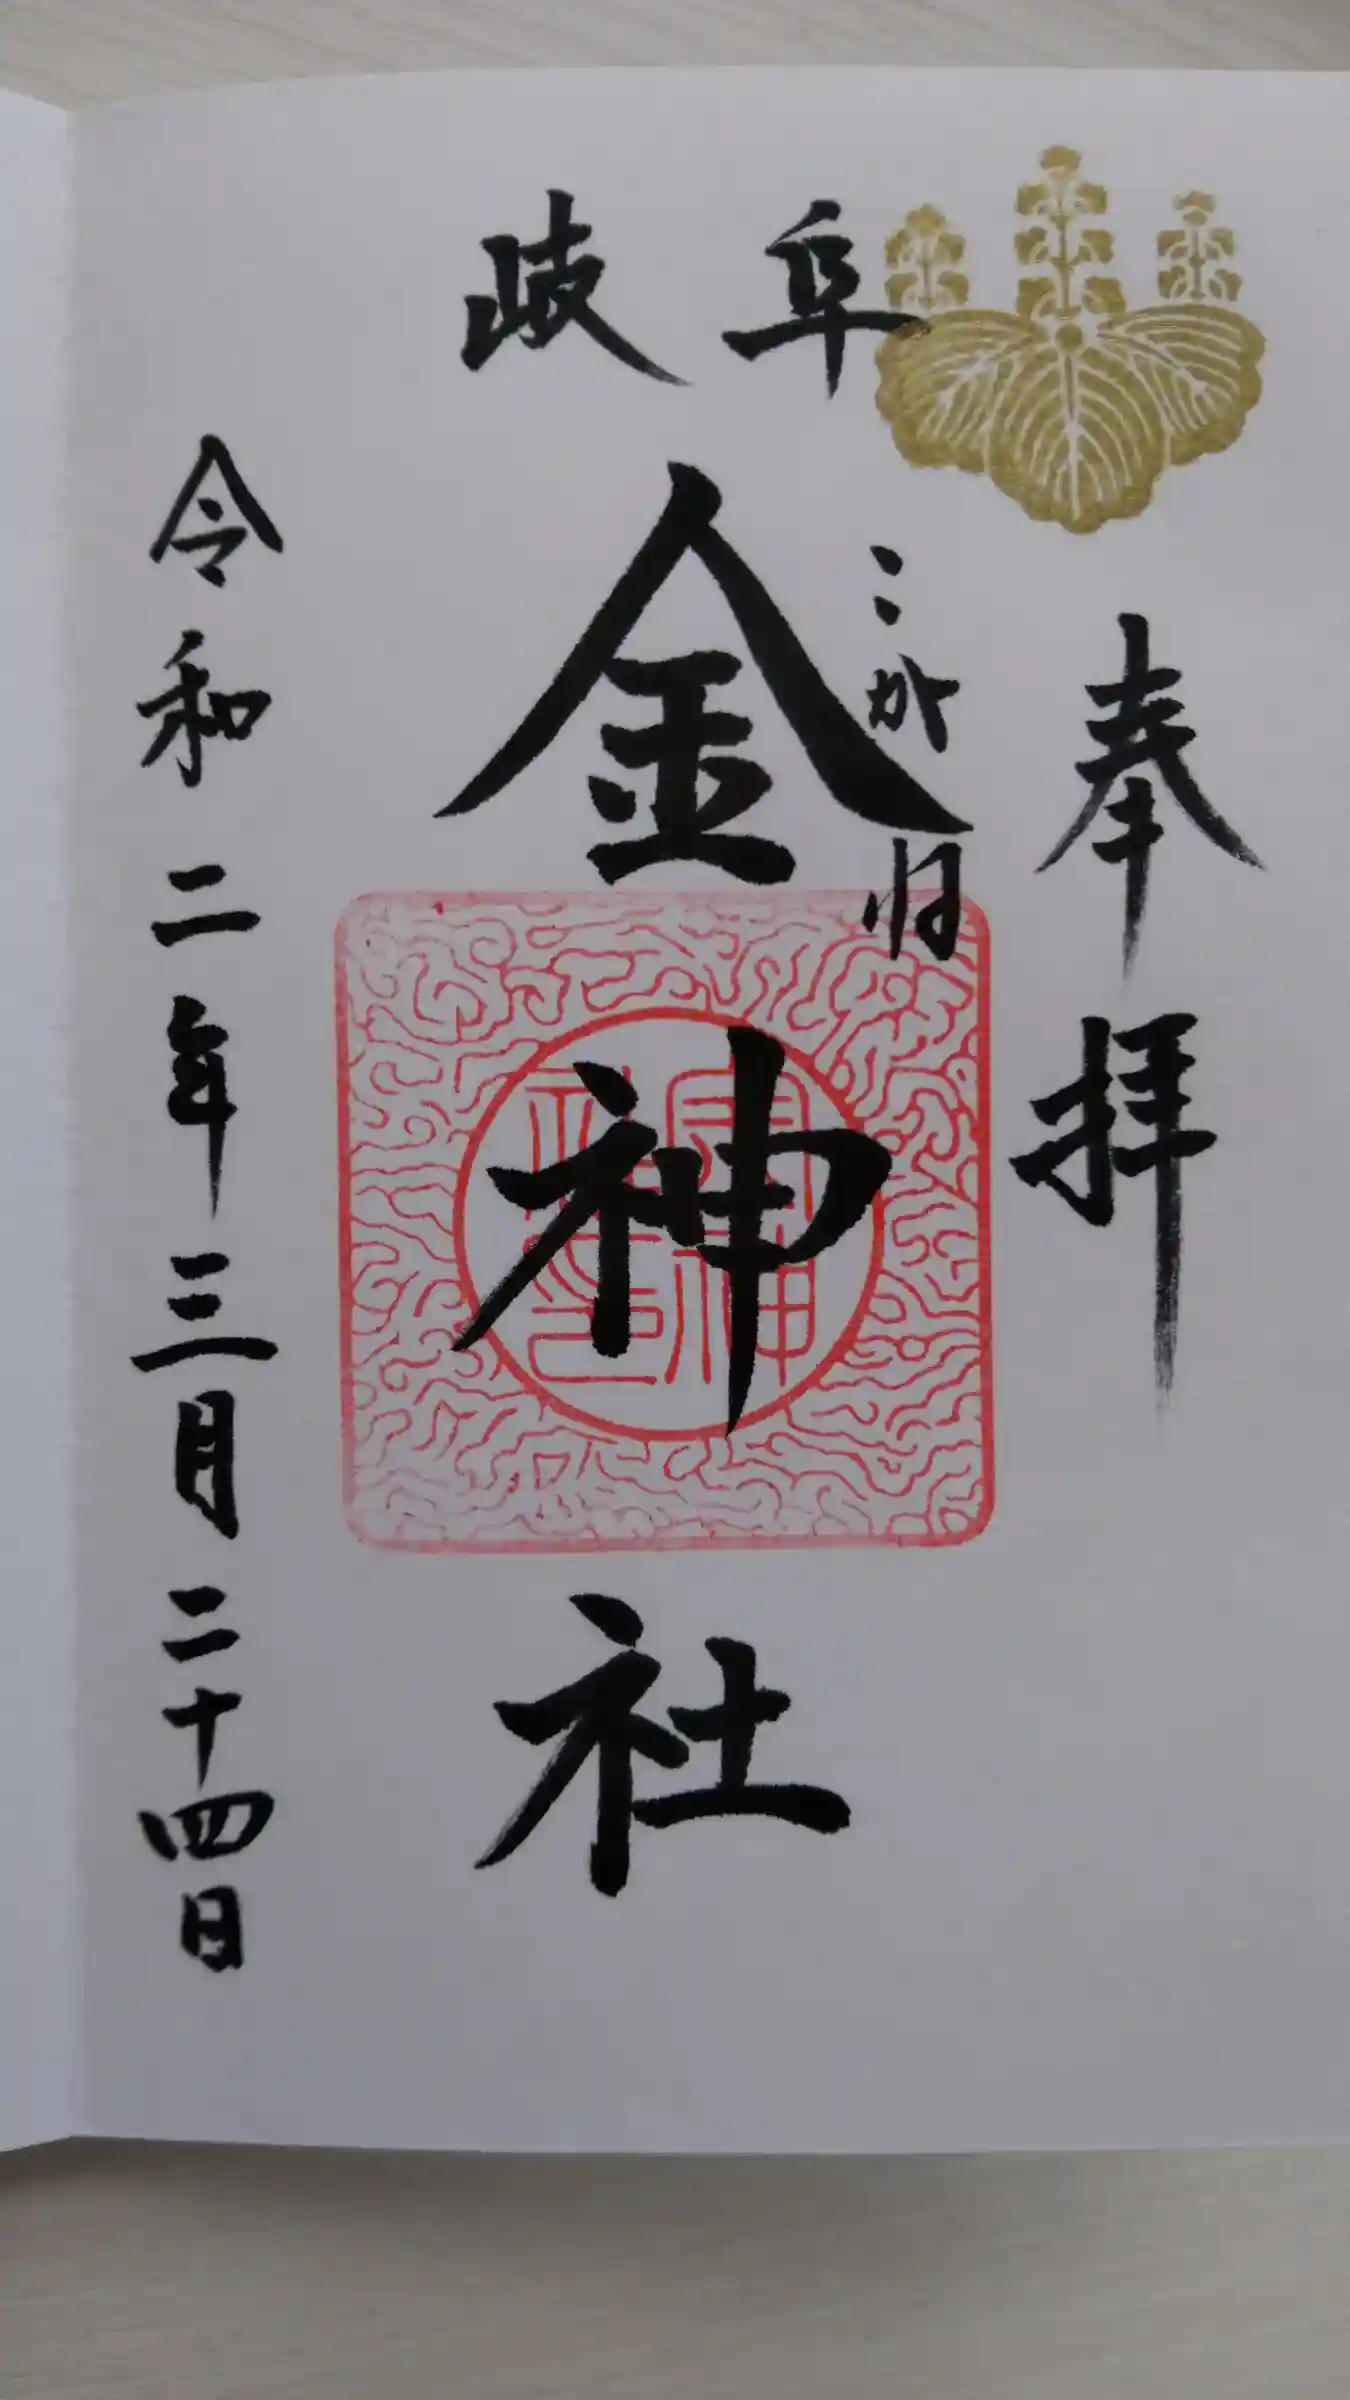 奉拝
岐阜
こがね
金神社
令和二年三月二十四日